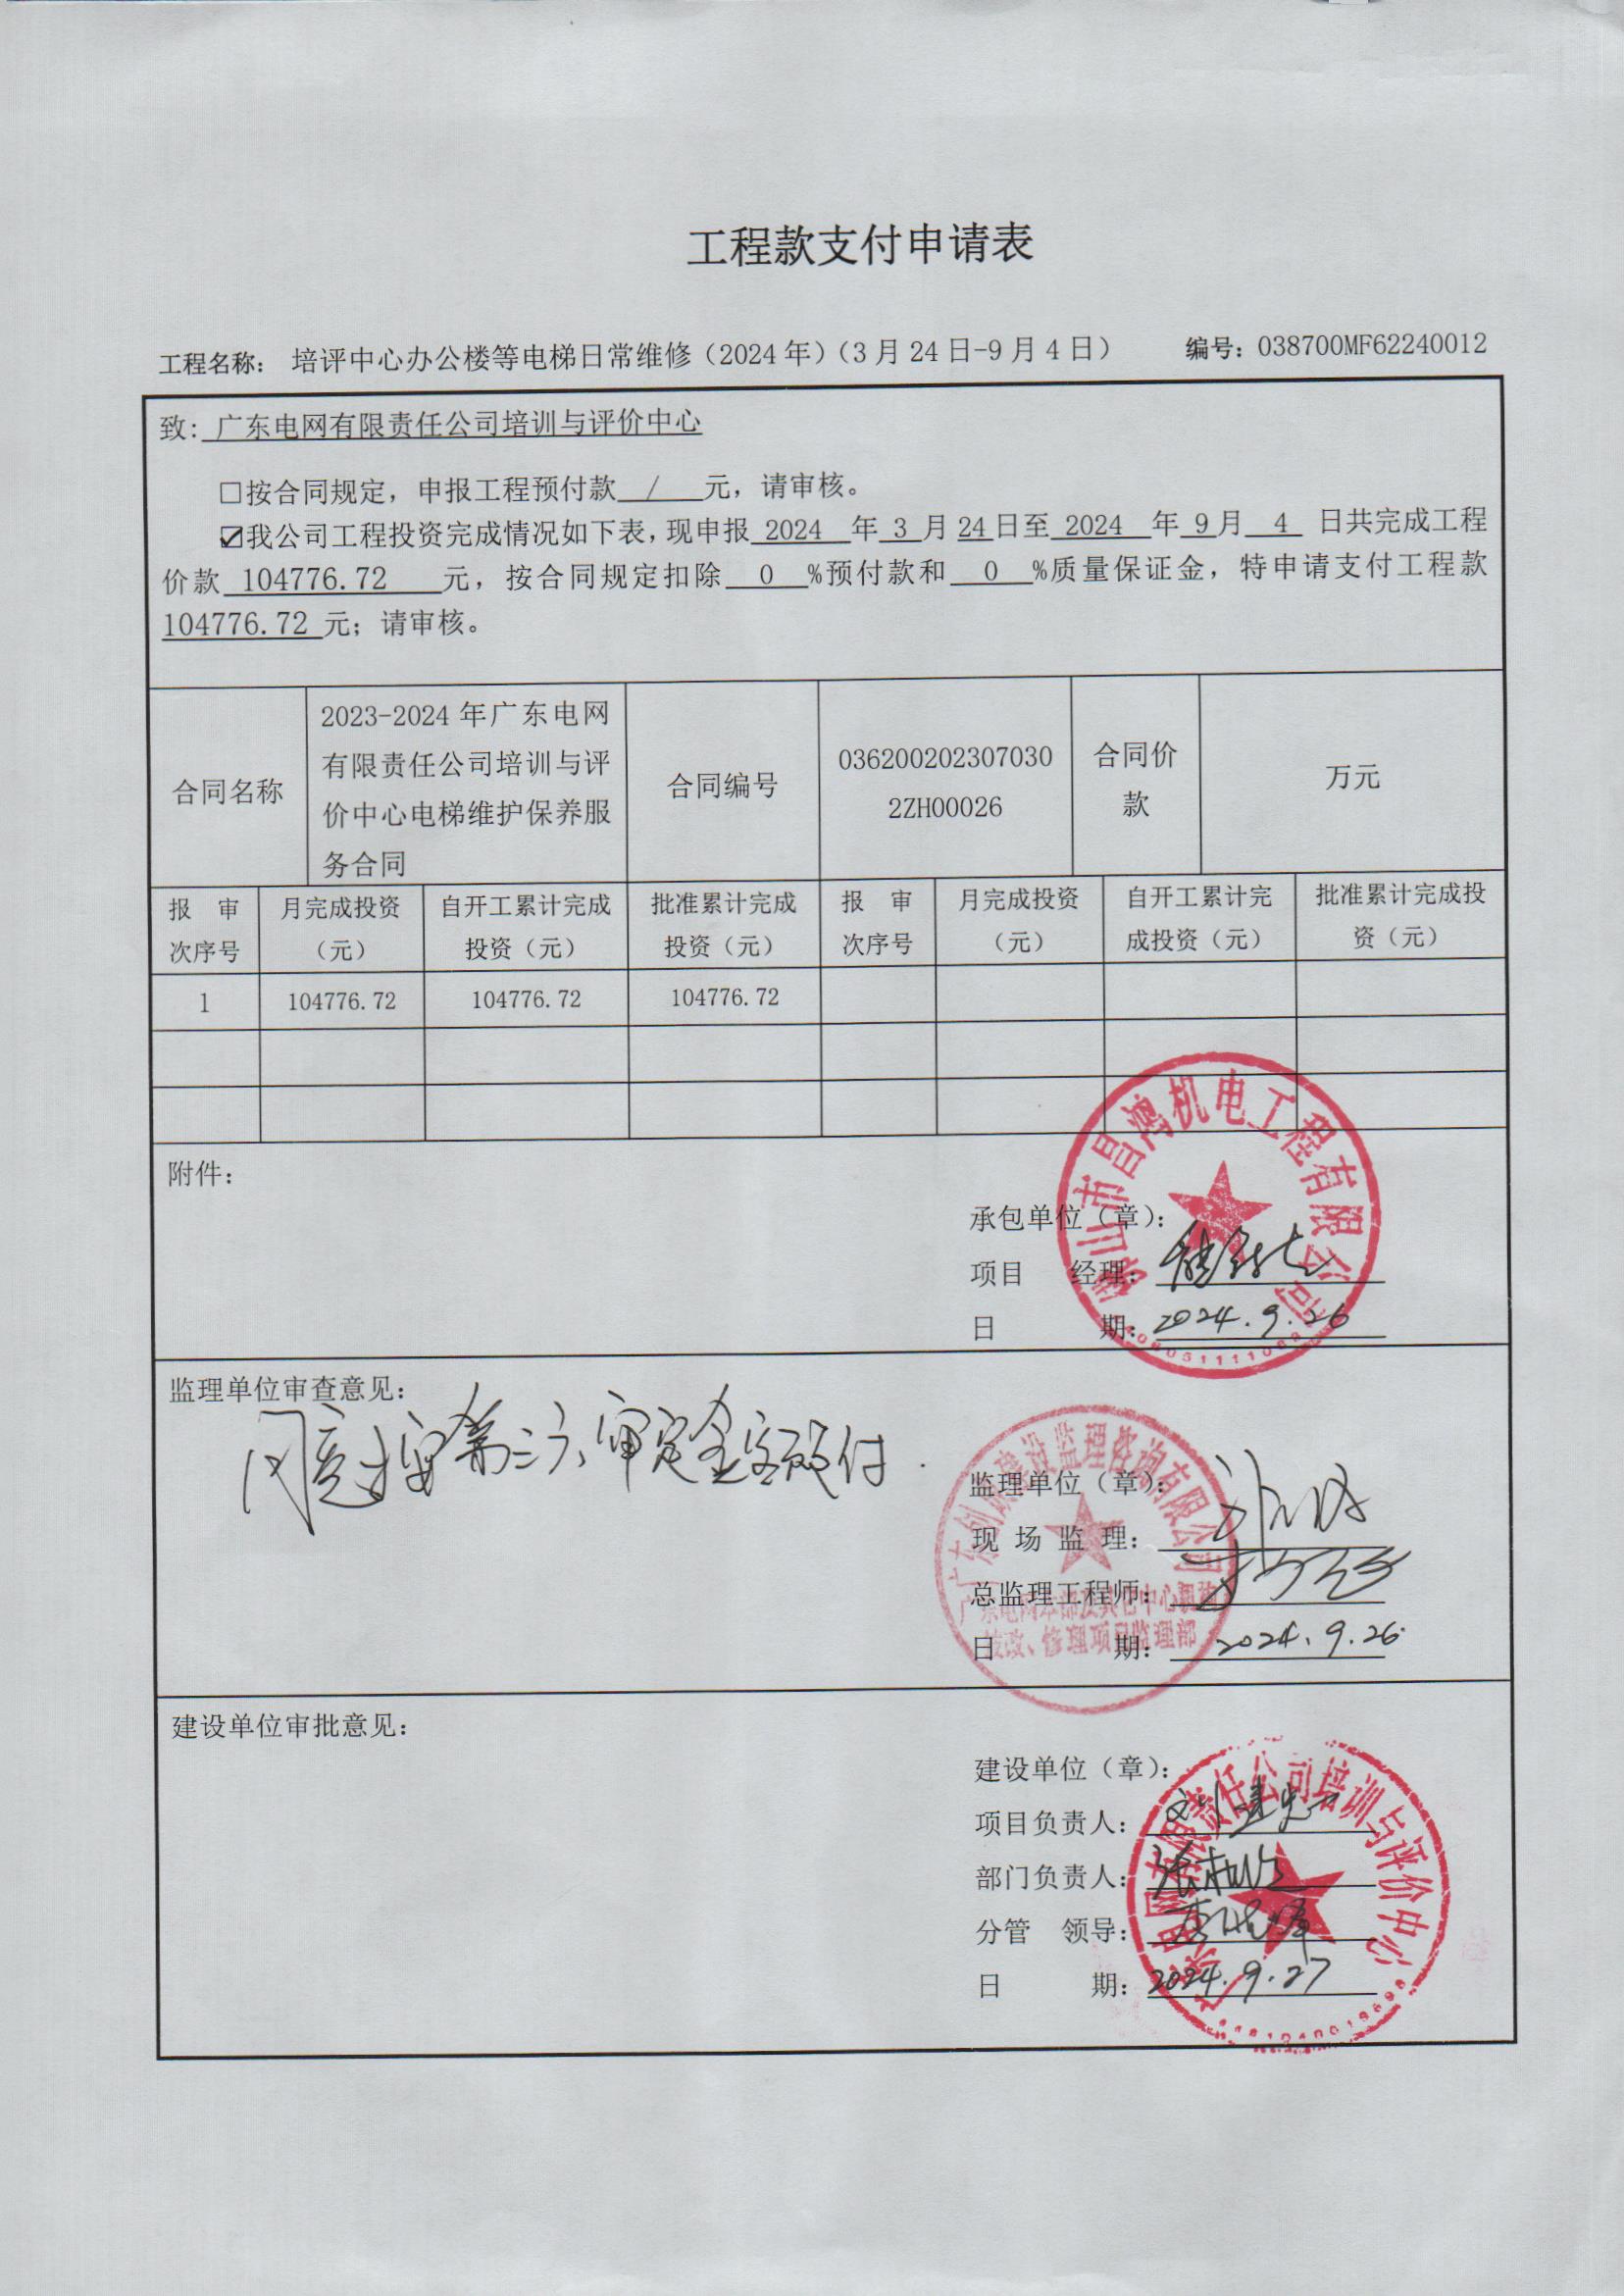 工程款支付申请表
工程名称： 培评中心办公楼等电梯日常维修（2024年）（3月24日-9月4日） 编号：038700MF62240012
致：广东电网有限责任公司培训与评价中心
□按合同规定，申报工程预付款 / 元，请审核。
☑我公司工程投资完成情况如下表，现申报 2024 年 3 月 24 日至 2024 年 9 月 4 日共完成工程
价款 104776.72 元，按合同规定扣除 0 %预付款和 0 %质量保证金，特申请支付工程款
104776.72 元；请审核。
合同名称
2023-2024年广东电网
有限责任公司培训与评
价中心电梯维护保养服
务合同
合同编号
036200202307030
2ZH00026
合同价
款
万元
报 审
次序号
月完成投资
（元）
自开工累计完成
投资（元）
批准累计完成
投资（元）
报 审
次序号
月完成投资
（元）
自开工累计完
成投资（元）
批准累计完成投
资（元）
1 104776.72 104776.72 104776.72
附件：
市昌鸿机电工程有限公司
承包单位（章）：
项目 经理：
日 期：2024.9.26
监理单位审查意见：
同意按第三方审定金额支付.
建设监理咨询有限公司
监理单位（章）：
现 场 监 理：
总监理工程师：
技改、修理项目监理部
日 期：2024.9.26.
建设单位审批意见：
广东电网有限责任公司培训与评价中心
建设单位（章）：
项目负责人：
部门负责人：
分管 领导：
日 期：2024.9.27